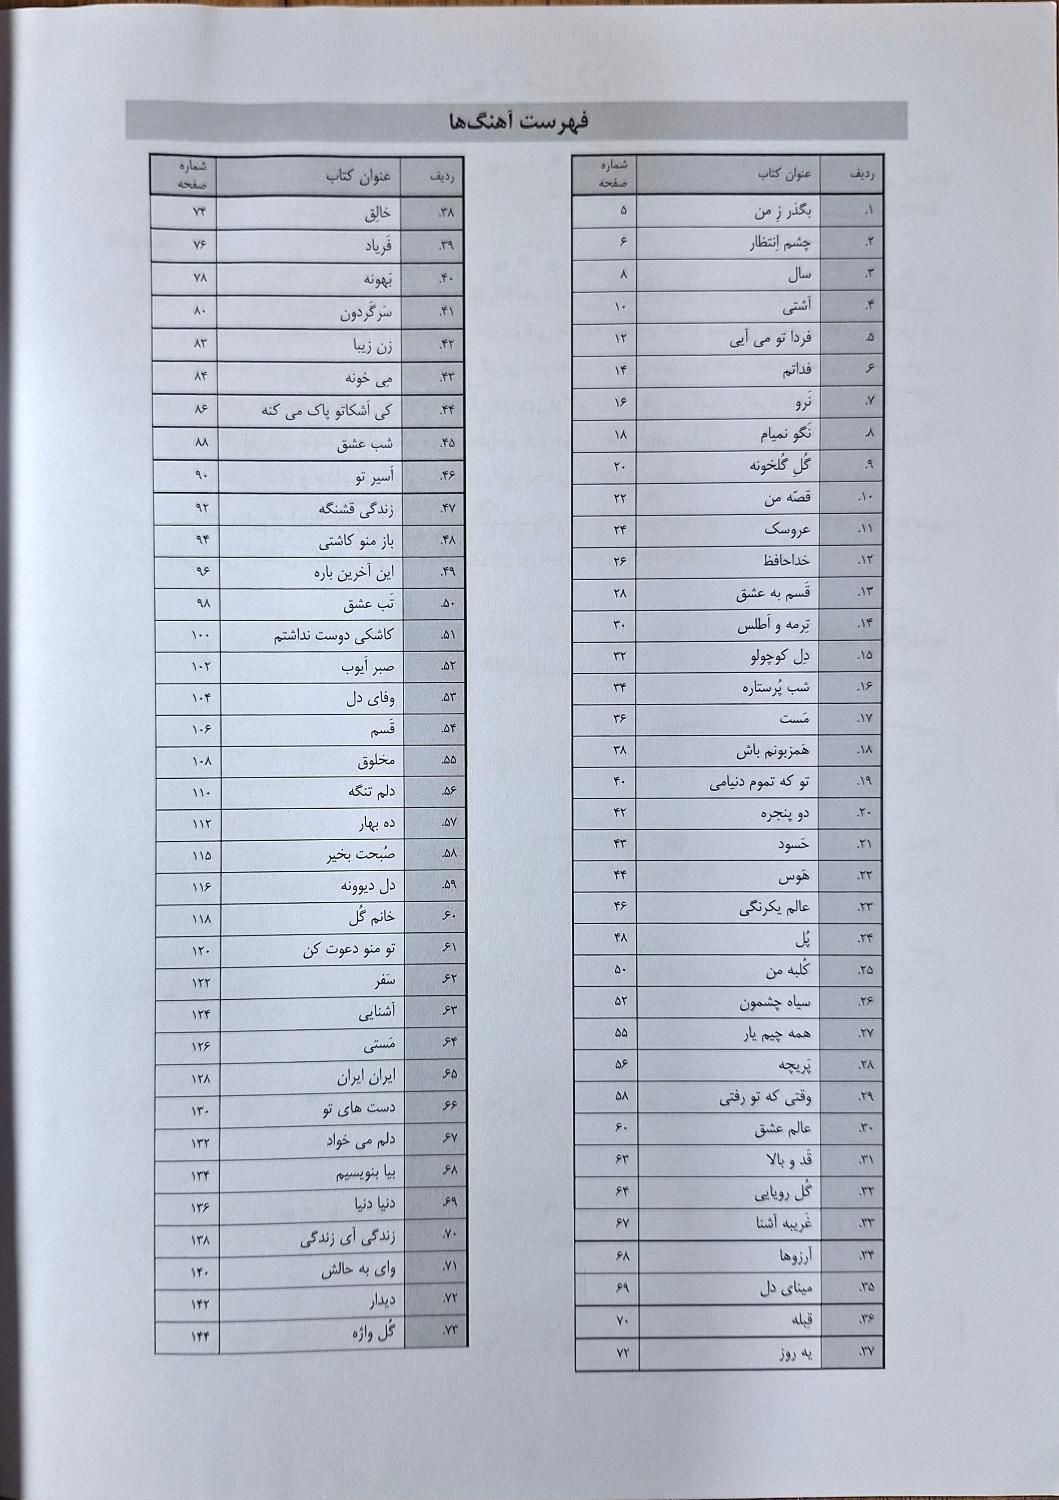 فهرست آهنگ‌ها
ردیف عنوان کتاب شماره صفحه
۱. بگذر زِ من ۵
۲. چشم اِنتظار ۶
۳. سال ۸
۴. آشتی ۱۰
۵. فردا تو می آیی ۱۲
۶. فداتم ۱۴
۷. نَرو ۱۶
۸. نَگو نمیام ۱۸
۹. گُلِ گُلخونه ۲۰
۱۰. قصّه من ۲۲
۱۱. عروسک ۲۴
۱۲. خداحافظ ۲۶
۱۳. قَسم به عشق ۲۸
۱۴. تِرمه و اَطلس ۳۰
۱۵. دل کوچولو ۳۲
۱۶. شب پُرستاره ۳۴
۱۷. مَست ۳۶
۱۸. هَمزبونم باش ۳۸
۱۹. تو که تموم دنیامی ۴۰
۲۰. دو پنجره ۴۲
۲۱. حَسود ۴۳
۲۲. هَوس ۴۴
۲۳. عالم یکرنگی ۴۶
۲۴. پُل ۴۸
۲۵. کُلبه من ۵۰
۲۶. سیاه چشمون ۵۲
۲۷. همه چیم یار ۵۵
۲۸. پَریچه ۵۶
۲۹. وقتی که تو رفتی ۵۸
۳۰. عالم عشق ۶۰
۳۱. قَد و بالا ۶۳
۳۲. گُل رویایی ۶۴
۳۳. غَریبه آشنا ۶۷
۳۴. آرزوها ۶۸
۳۵. مینای دل ۶۹
۳۶. قِبله ۷۰
۳۷. یه روز ۷۲
ردیف عنوان کتاب شماره صفحه
۳۸. خالِق ۷۴
۳۹. فَریاد ۷۶
۴۰. بَهونه ۷۸
۴۱. سَرگَردون ۸۰
۴۲. زن زیبا ۸۳
۴۳. مِی خونه ۸۴
۴۴. کی اَشکاتو پاک می کنه ۸۶
۴۵. شب عشق ۸۸
۴۶. اَسیر تو ۹۰
۴۷. زندگی قشنگه ۹۲
۴۸. باز منو کاشتی ۹۴
۴۹. این آخرین باره ۹۶
۵۰. تَب عشق ۹۸
۵۱. کاشکی دوست نداشتم ۱۰۰
۵۲. صبر اَیوب ۱۰۲
۵۳. وفای دل ۱۰۴
۵۴. قَسم ۱۰۶
۵۵. مخلوق ۱۰۸
۵۶. دلم تنگه ۱۱۰
۵۷. ده بهار ۱۱۲
۵۸. صُبحت بخیر ۱۱۵
۵۹. دل دیوونه ۱۱۶
۶۰. خانم گُل ۱۱۸
۶۱. تو منو دعوت کن ۱۲۰
۶۲. سَفر ۱۲۲
۶۳. آشنایی ۱۲۴
۶۴. مَستی ۱۲۶
۶۵. ایران ایران ۱۲۸
۶۶. دست های تو ۱۳۰
۶۷. دلم می خواد ۱۳۲
۶۸. بیا بنویسیم ۱۳۴
۶۹. دنیا دنیا ۱۳۶
۷۰. زندگی آی زندگی ۱۳۸
۷۱. وای به حالش ۱۴۰
۷۲. دیدار ۱۴۲
۷۳. گُل واژه ۱۴۴